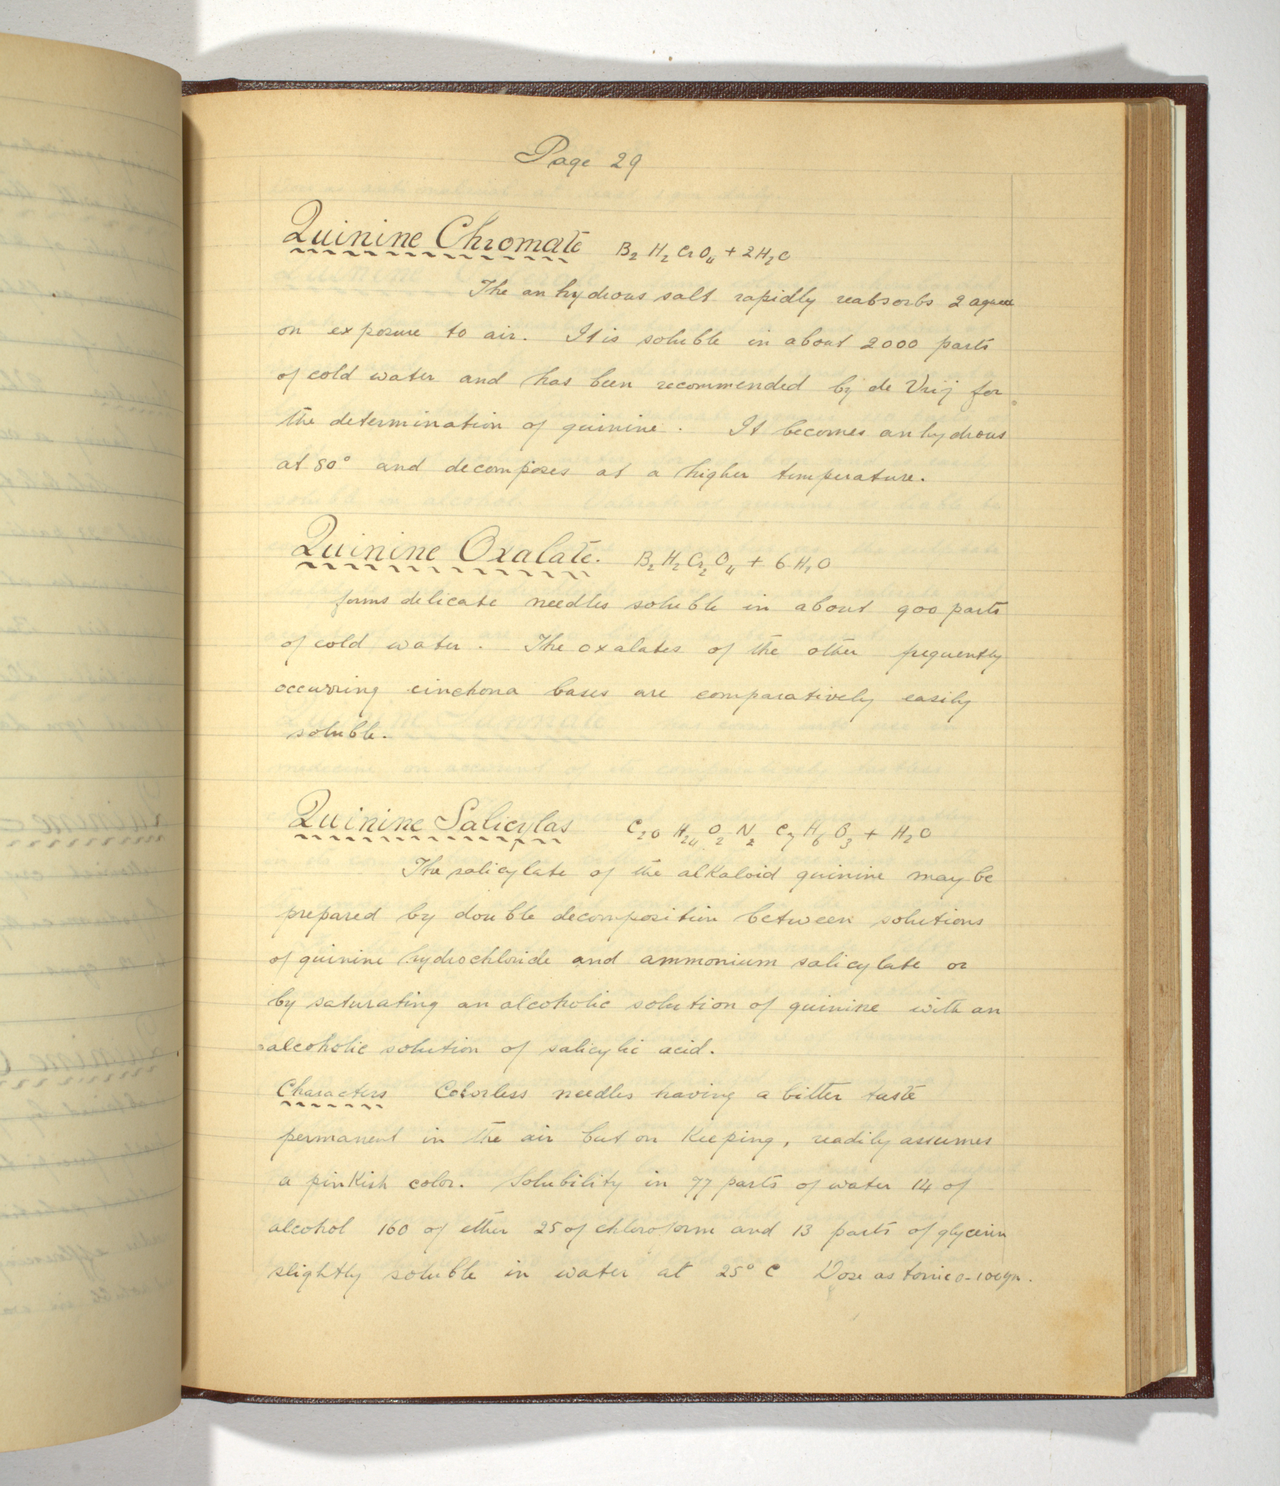 Page 29
Quinine Chromate B₂ H₂ CrO₄ + 2H₂O
The anhydrous salt rapidly reabsorbs 2 aquae
on exposure to air. It is soluble in about 2000 parts
of cold water and has been recommended by de Vrij for
the determination of quinine. It becomes anhydrous
at 80° and decomposes at a higher temperature.
Quinine Oxalate. B₂ H₂ C₂ O₄ + 6 H₂O
forms delicate needles soluble in about 900 parts
of cold water. The oxalates of the other frequently
occurring cinchona bases are comparatively easily
soluble.
Quinine Salicylas C₂₀ H₂₄ O₂ N₂ C₇ H₆ O₃ + H₂O
The salicylate of the alkaloid quinine may be
prepared by double decomposition between solutions
of quinine hydrochloride and ammonium salicylate or
by saturating an alcoholic solution of quinine with an
alcoholic solution of salicylic acid.
Characters Colorless needles having a bitter taste
permanent in the air but on Keeping, readily assumes
a pinkish color. Solubility in 77 parts of water 14 of
alcohol 160 of ether 25 of chloroform and 13 parts of glycerin
slightly soluble in water at 25° C Dose as tonic